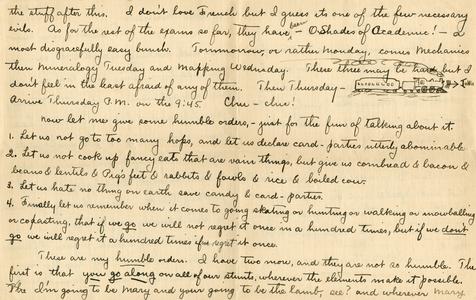 the stuff after this. I don't love French but I guess its one of the few necessary
evils. As for the rest of the exams so far, they have been, - O Shades of Academic! - a
most disgracefully easy bunch. Tommorrow, or rather Monday, comes Mechanics
then Mineralogy Tuesday and Mapping Wednesday. These three may be hard but I
don't feel in the least afraid of any of them. Then Thursday -
Arrive Thursday P.M. on the 9:45. Chue - chue!
now let me give some humble orders, - just for the fun of talking about it.
1. Let us not go to too many hops, and let us declare card-parties utterly abominable
2. Let us not cook up fancy eats that are vain things, but give us cornbread & bacon &
beans & lentils & Pig's feet & rabbits & fowls & rice & boiled cow.
3. Let us hate no thing on earth save candy & card-parties.
4. Finally let us remember when it comes to going skating or hunting or walking or snowballing
or coasting, that if we go we will not regret it once in a hundred times, but if we don't
go we will regret it a hundred times if we regret it once.
These are my humble orders. I have two more, and they are not so humble. The
first is that you go along on all of our stunts, wherever the elements make it possible.
I'm going to be Mary and your going to be the lamb, see? and wherever Mary